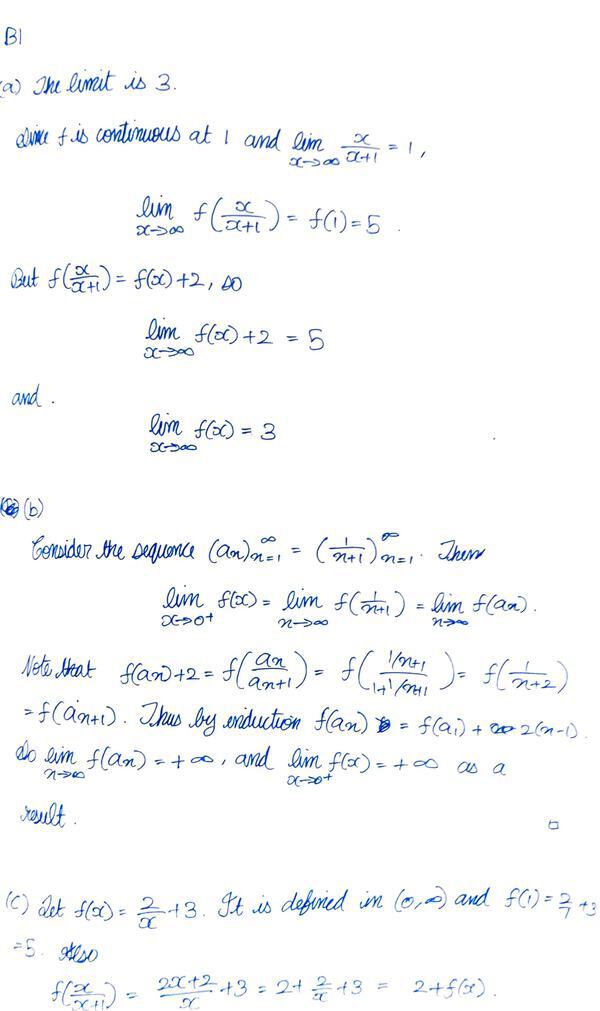 B1
(a) The limit is 3.
Since f is continuous at 1 and lim x→∞ x/(x+1) = 1,
lim x→∞ f(x/(x+1)) = f(1) = 5.
But f(x/(x+1)) = f(x)+2, so
lim x→∞ f(x)+2 = 5
and.
lim x→∞ f(x) = 3
(b)
Consider the sequence (an)∞n=1 = (1/(n+1))∞n=1. Then
lim x→0+ f(x) = lim n→∞ f(1/(n+1)) = lim n→∞ f(an).
Note that f(an)+2 = f(an/(an+1)) = f((1/n+1)/(1+1/n+1)) = f(1/(n+2))
= f(an+1). Thus by induction f(an) = f(a1) + 2(n-1).
So lim n→∞ f(an) = +∞, and lim x→0+ f(x) = +∞ as a
result. □
(c) Let f(x) = 2/x +3. It is defined in (0,∞) and f(1) = 2/1 +3
=5. Also
f(x/(x+1)) = (2x+2)/x +3 = 2+ 2/x +3 = 2+f(x).